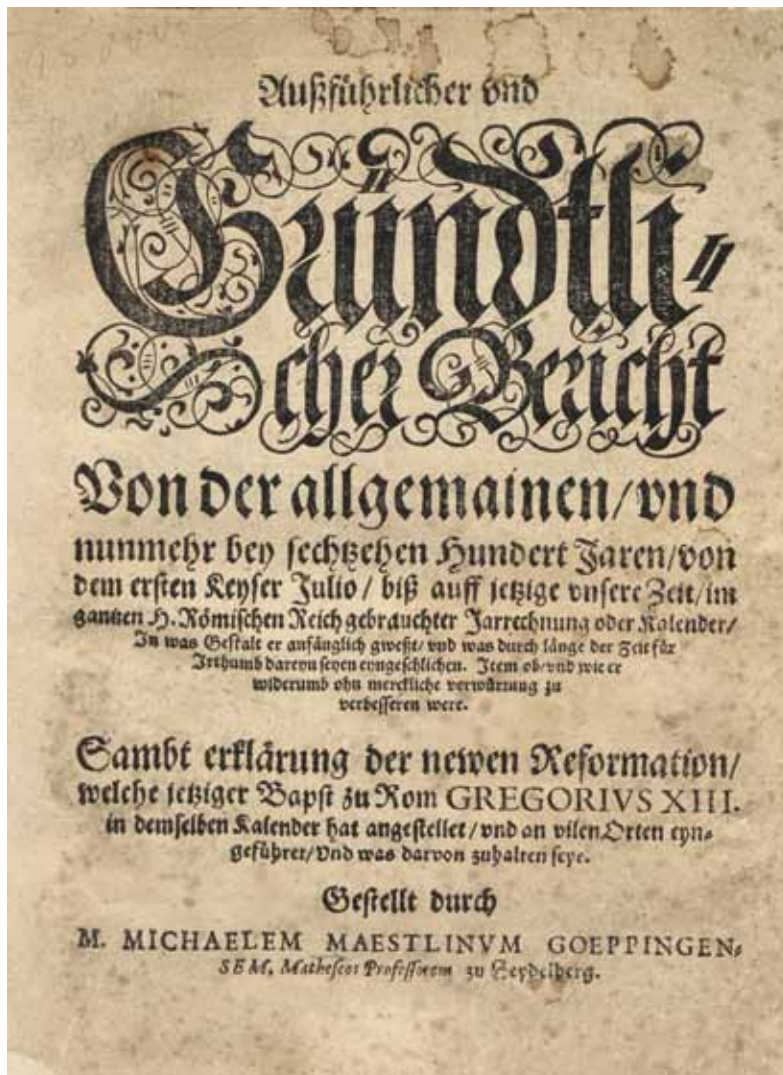 Außführlicher vnd
Gründtli⸗
cher Bericht
Von der allgemainen/vnd
nunmehr bey sechtzehen Hundert Jaren/von
dem ersten Keyser Julio/ biß auff jetzige vnsere Zeit/im
gantzen H. Römischen Reich gebrauchter Jarrechnung oder Kalender/
In was Gestalt er anfänglich gweßt/ vnd was durch länge der Zeit für
Irthumb dareyn seyen eyngeschlichen. Item ob/vnd wie er
widerumb ohn merckliche verwürrung zu
verbesseren were.
Sambt erklärung der newen Reformation/
welche jetziger Bapst zu Rom GREGORIVS XIII.
in demselben Kalender hat angestellet/ vnd an vilen Orten eyn⸗
geführet/Vnd was darvon zuhalten seye.
Gestellt durch
M. MICHAELEM MAESTLINVM GOEPPINGEN⸗
SEM, Matheseos Professorem zu Heydelberg.